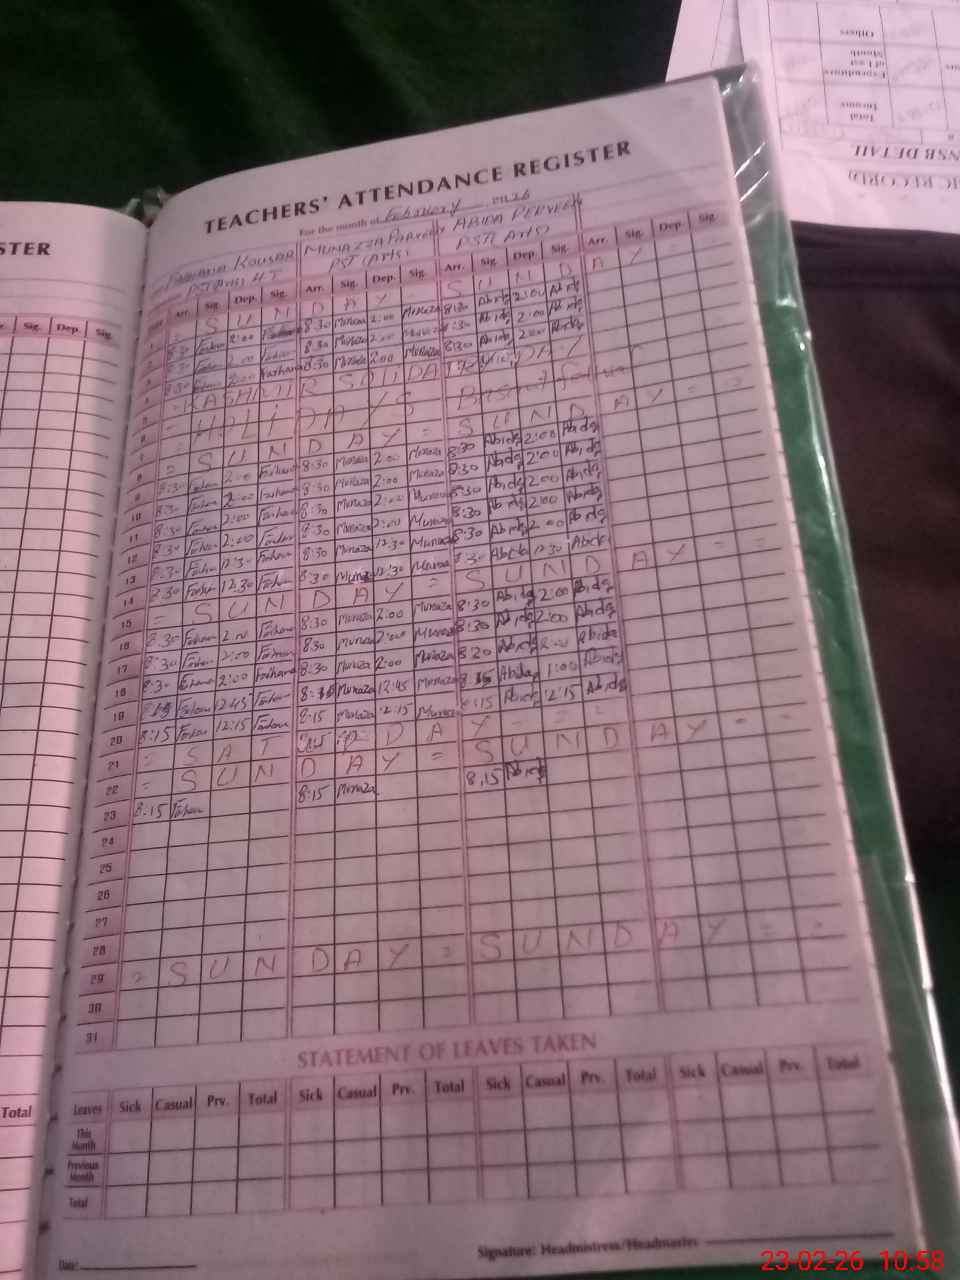 STER
TEACHERS' ATTENDANCE REGISTER
For the month of February 2026
FARHANA KOUSAR MUNAZZA PARVEEN ABIDA PERVEEN
PST(Arts) PST (Arts)
Arr. Sig. Dep. Sig. Arr. Sig. Dep. Sig. Arr. Sig. Dep. Sig. Arr. Sig. Dep. Sig.
Sig. Dep. Sig.
1 = S U N D A Y = S U N D A Y =
2 8:30 Farhan 2:00 Farhana 8:30 Munaza 2:00 Munaza 8:30 Abida 2:00 Abida
3 8:30 Farhan 2:00 Farhan 8:30 Munaza 2:00 Munaza 8:30 Abida 2:00 Abida
4 8:30 Farhan 2:00 Farhana 8:30 Munaza 2:00 Munaza 8:30 Abida 2:00 Abida
5 = KASHMIR SOLIDARITY DAY
6 = HOLIDAYS Basant
7
8 = S U N D A Y = S U N D A Y = =
9 8:30 Farhan 2:00 Farhan 8:30 Munaza 2:00 Munaza 8:30 Abida 2:00 Abida
10 8:30 Farhan 2:00 Farhan 8:30 Munaza 2:00 Munaza 8:30 Abida 2:00 Abida
11 8:30 Farhan 2:00 Farhan 8:30 Munaza 2:00 Munaza 8:30 Abida 2:00 Abida
12 8:30 Farhan 2:00 Farhan 8:30 Munaza 2:00 Munaza 8:30 Abida 2:00 Abida
13 8:30 Farhan 12:30 Farhan 8:30 Munaza 12:30 Munaza 8:30 Abida 12:30 Abida
14
15 = S U N D A Y = S U N D A Y = =
16 8:30 Farhan 2:00 Farhana 8:30 Munaza 2:00 Munaza 8:30 Abida 2:00 Abida
17 8:30 Farhan 2:00 Farhan 8:30 Munaza 2:00 Munaza 8:30 Abida 2:00 Abida
18 8:30 Farhana 2:00 Farhana 8:30 Munaza 2:00 Munaza 8:30 Abida 2:00 Abida
19 8:15 Farhana 12:45 Farhan Munaza 12:45 Munaza 8:15 Abida 1:00 Abida
20 8:15 Farhan 12:15 Farhan 8:15 Munaza 12:15 Munaza 8:15 Abida 12:15 Abida
21 = S A T D A Y = = =
22 = S U N D A Y = S U N D A Y = =
23 8:15 Farhan 8:15 Munaza 8:15 Abida
24
25
26
27
28
29 = S U N D A Y = S U N D A Y = =
30
31
STATEMENT OF LEAVES TAKEN
Leaves Sick Casual Prv. Total Sick Casual Prv. Total Sick Casual Prv. Total Sick Casual Prv. Total
This Month
Previous Month
Total
Total
Date:
Signature: Headmistress/Headmaster
Others
Expenditure of Last Month
Total Income
NSB DETAIL
IC RECORD)
23-02-26 10:58